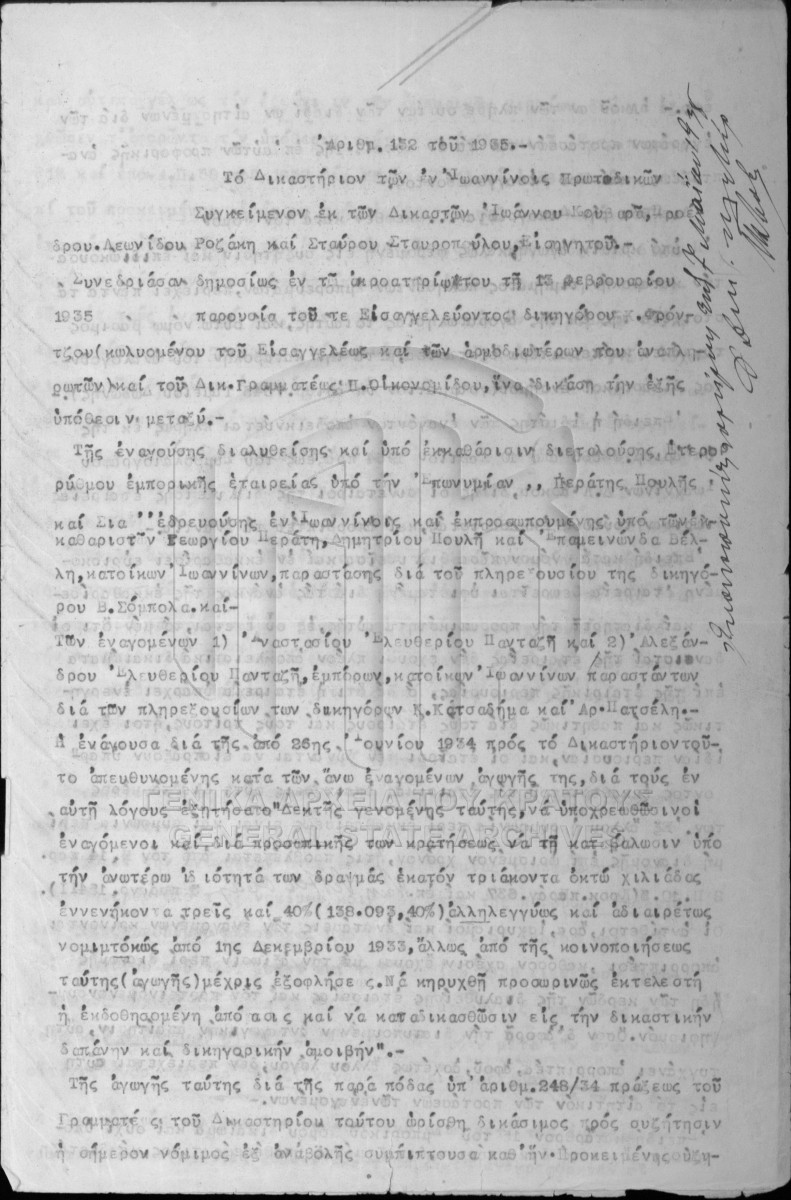 Ἀριθμ. 132 τοῦ 1935.-
Τό Δικαστήριον τῶν ἐν Ἰωαννίνοις Πρωτοδικῶν
Συγκείμενον ἐκ τῶν Δικαστῶν Ἰωάννου Προέ
δρου.Λεωνίδου Ροζάκη καί Σταύρου Σταυροπούλου,Εἰσηγητοῦ.-
Συνεδριάσαν δημοσίως ἐν τῷ ἀκροατηρίῳ του τῇ 13 Φεβρουαρίου
1935 παρουσίᾳ τοῦ τε Εἰσαγγελεύοντος δικηγόρου Χ.Φρόν-
τζου(κωλυομένου τοῦ Εἰσαγγελέως καί τῶν ἁρμοδιωτέρων του ἀναπλη-
ρωτῶν)καί τοῦ Δικ.Γραμματέως Π.Οἰκονομίδου,ἵνα δικάσῃ τήν ἑξῆς
ὑπόθεσιν μεταξύ.-
Τῆς ἐναγούσης διαλυθείσης καί ὑπό ἐκκαθάρισιν διατελούσης Ἑτερο
ρύθμου ἐμπορικῆς ἑταιρείας ὑπό τήν Ἐπωνυμίαν ,, Περάτης Πουλῆς
καί Σια ἑδρευούσης ἐν Ἰωαννίνοις καί ἐκπροσωπουμένης ὑπό τῶν ἐκ
καθαριστῶν Γεωργίου Περάτη,Δημητρίου Πουλῆ καί Ἐπαμεινώνδα Βέλ-
λη,κατοίκων Ἰωαννίνων,παραστάσης διά τοῦ πληρεξουσίου της δικηγό-
ρου Β.Σόμπολα.καί-
Τῶν ἐναγομένων 1) Ἀναστασίου Ἐλευθερίου Πανταζῆ καί 2)Ἀλεξάν-
δρου Ἐλευθερίου Πανταζῆ,ἐμπόρων,κατοίκων Ἰωαννίνων παραστάντων
διά τῶν πληρεξουσίων των δικηγόρων Κ.Κατσαδήμα καί Ἀρ.Πατσέλη.-
Ἡ ἐνάγουσα διά τῆς ἀπό 26ης Ἰουνίου 1934 πρός τό Δικαστήριον τοῦ-
το ἀπευθυνομένης κατά τῶν ἄνω ἐναγομένων ἀγωγῆς της,διά τούς ἐν
αὐτῇ λόγους ἐζητήσατο"Δεκτῆς γενομένης ταύτης,νά ὑποχρεωθῶσιν οἱ
ἐναγόμενοι καί διά προσωπικῆς των κρατήσεως νά τῇ καταβάλωσιν ὑπό
τήν ἀνωτέρω ἰδιότητά των δραχμάς ἑκατόν τριάκοντα ὀκτώ χιλιάδας
ἐννενήκοντα τρεῖς καί 40%(138.093,40%)ἀλληλεγγύως καί ἀδιαιρέτως
νομιμτόκως ἀπό 1ης Δεκεμβρίου 1933,ἄλλως ἀπό τῆς κοινοποιήσεως
ταύτης(ἀγωγῆς)μέχρις ἐξοφλήσε ς.Νά κηρυχθῇ προσωρινῶς ἐκτελεστή
ἡ ἐκδοθησομένη ἀπό ασις καί νά καταδικασθῶσιν εἰς τήν δικαστικήν
δαπάνην καί δικηγορικήν ἀμοιβήν".-
Τῆς ἀγωγῆς ταύτης διά τῆς παρά πόδας ὑπ'ἀριθμ.248/34 πράξεως τοῦ
Γραμματέ ς τοῦ Δικαστηρίου τούτου ὡρίσθη δικάσιμος πρός συζήτησιν
ἡ σήμερον νόμιμος ἐξ ἀναβολῆς συμπίπτουσα καθ'ἥν Προκειμένης
ΓΕΝΙΚΑ ΑΡΧΕΙΑ ΤΟΥ ΚΡΑΤΟΥΣ
GENERAL STATE ARCHIVES